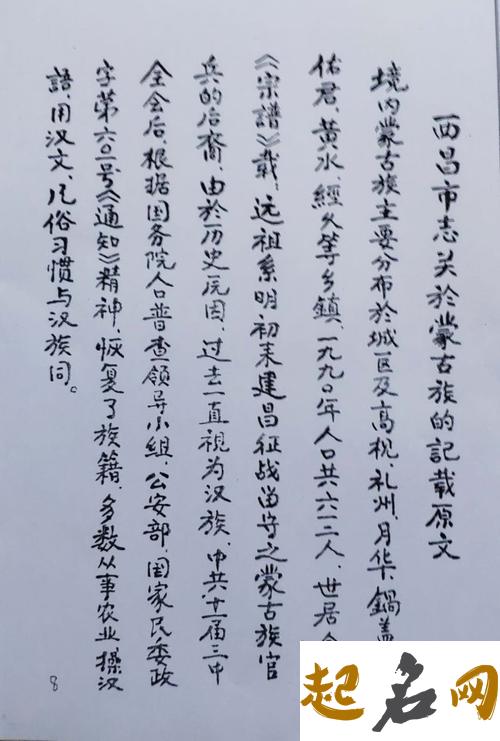 西昌市志关於蒙古族的記载原文
境内蒙古族主要分布於城区及高枧、礼州、月华、鍋盖
佑君、黄水、經久等乡鎮、一九九〇年人口共六一三人、世居
《宗譜》载：远祖系明初来建昌征战留守之蒙古族官
兵的后裔、由於历史原因、过去一直視为汉族、中共十一届三中
全会后、根据国务院人口普查领导小组、公安部、国家民委政
字第六〇一号《通知》精神、恢复了族籍、多数从事农业、操汉
語、用汉文、风俗习惯与汉族同。
8
起名网